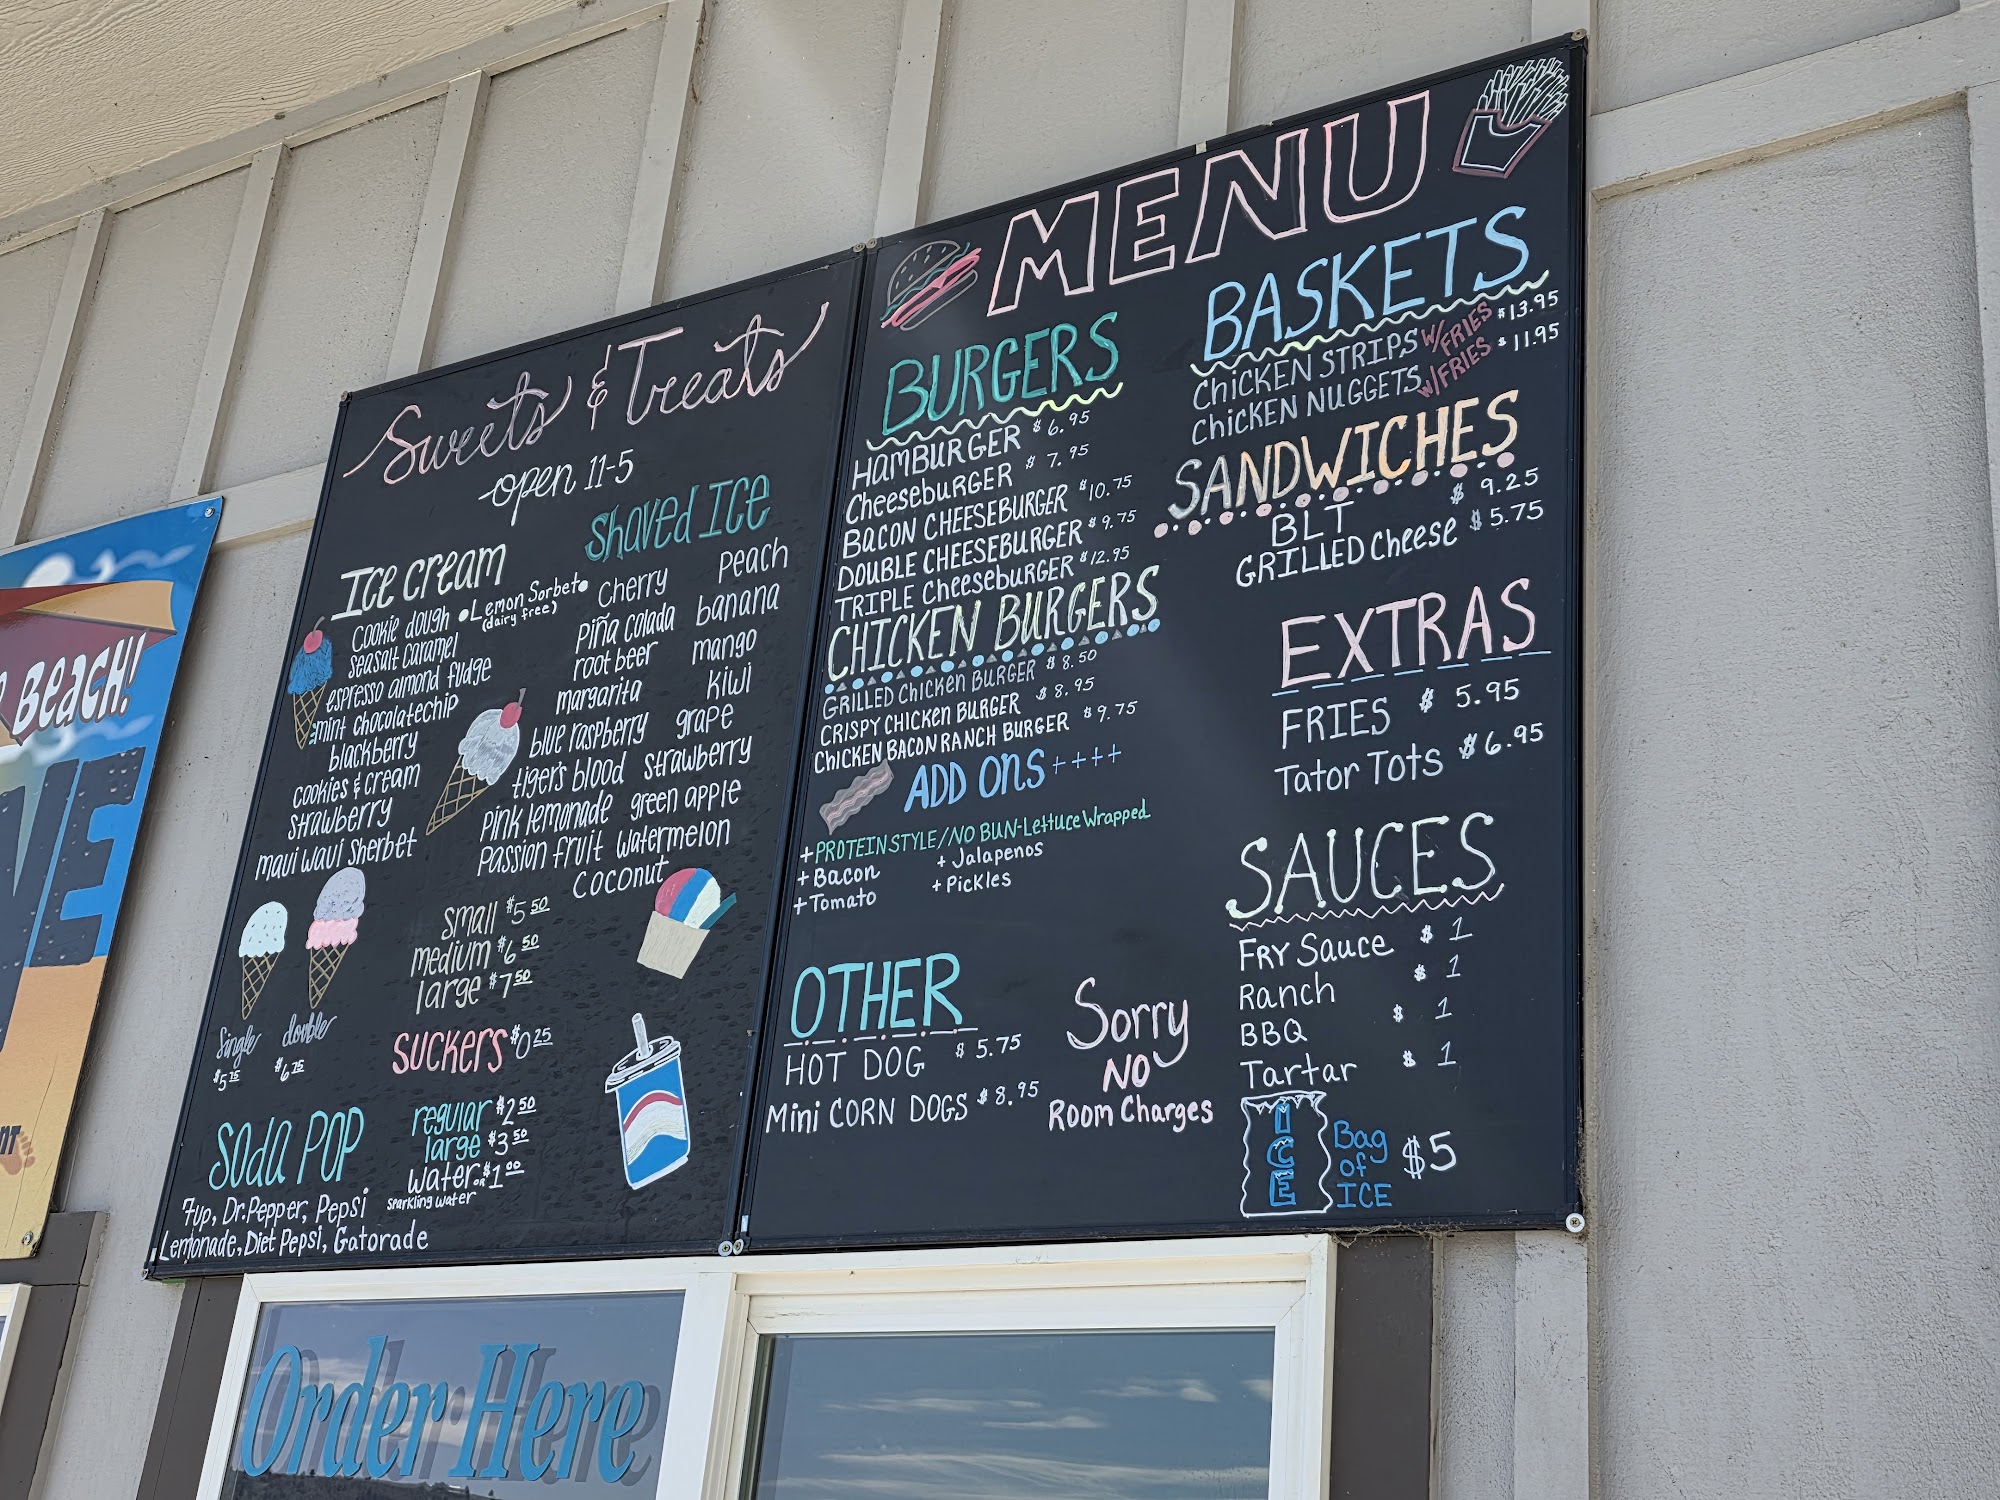 BEACH!
Sweets & Treats
open 11-5
Ice cream
Cookie dough • Lemon Sorbet •
(dairy free)
seasalt caramel
espresso almond fudge
mint chocolatechip
blackberry
cookies & cream
strawberry
maui waui Sherbet
Single double
$5 75 $6 75
Shaved Ice
Cherry Peach
Piña colada banana
root beer mango
margarita kiwi
blue raspberry grape
tiger's blood strawberry
Pink lemonade green apple
Passion fruit watermelon
Coconut
small $5 50
medium $6 50
large $7 50
SUCKERS $0 25
Soda POP
regular $2 50
large $3 50
water or $1 00
sparkling water
7up, Dr.Pepper, Pepsi
Lemonade, Diet Pepsi, Gatorade
MENU
BURGERS
HAMBURGER $6.95
Cheeseburger $7.95
BACON CHEESEBURGER $10.75
DOUBLE CHEESEBURGER $9.75
TRIPLE Cheeseburger $12.95
CHICKEN BURGERS
GRILLED Chicken BURGER $8.50
CRISPY CHICKEN BURGER $8.95
CHICKEN BACON RANCH BURGER $9.75
ADD ONS ++++
+ PROTEIN STYLE/NO BUN-Lettuce Wrapped
+ Bacon + Jalapenos
+ Tomato + Pickles
OTHER
HOT DOG $5.75
Mini CORN DOGS $8.95
Sorry
NO
Room Charges
BASKETS
CHICKEN STRIPS W/FRIES $13.95
CHICKEN NUGGETS W/FRIES $11.95
SANDWICHES
BLT $9.25
GRILLED Cheese $5.75
EXTRAS
FRIES $5.95
Tator Tots $6.95
SAUCES
FRY Sauce $1
Ranch $1
BBQ $1
Tartar $1
ICE
Bag
of
ICE
$5
Order Here